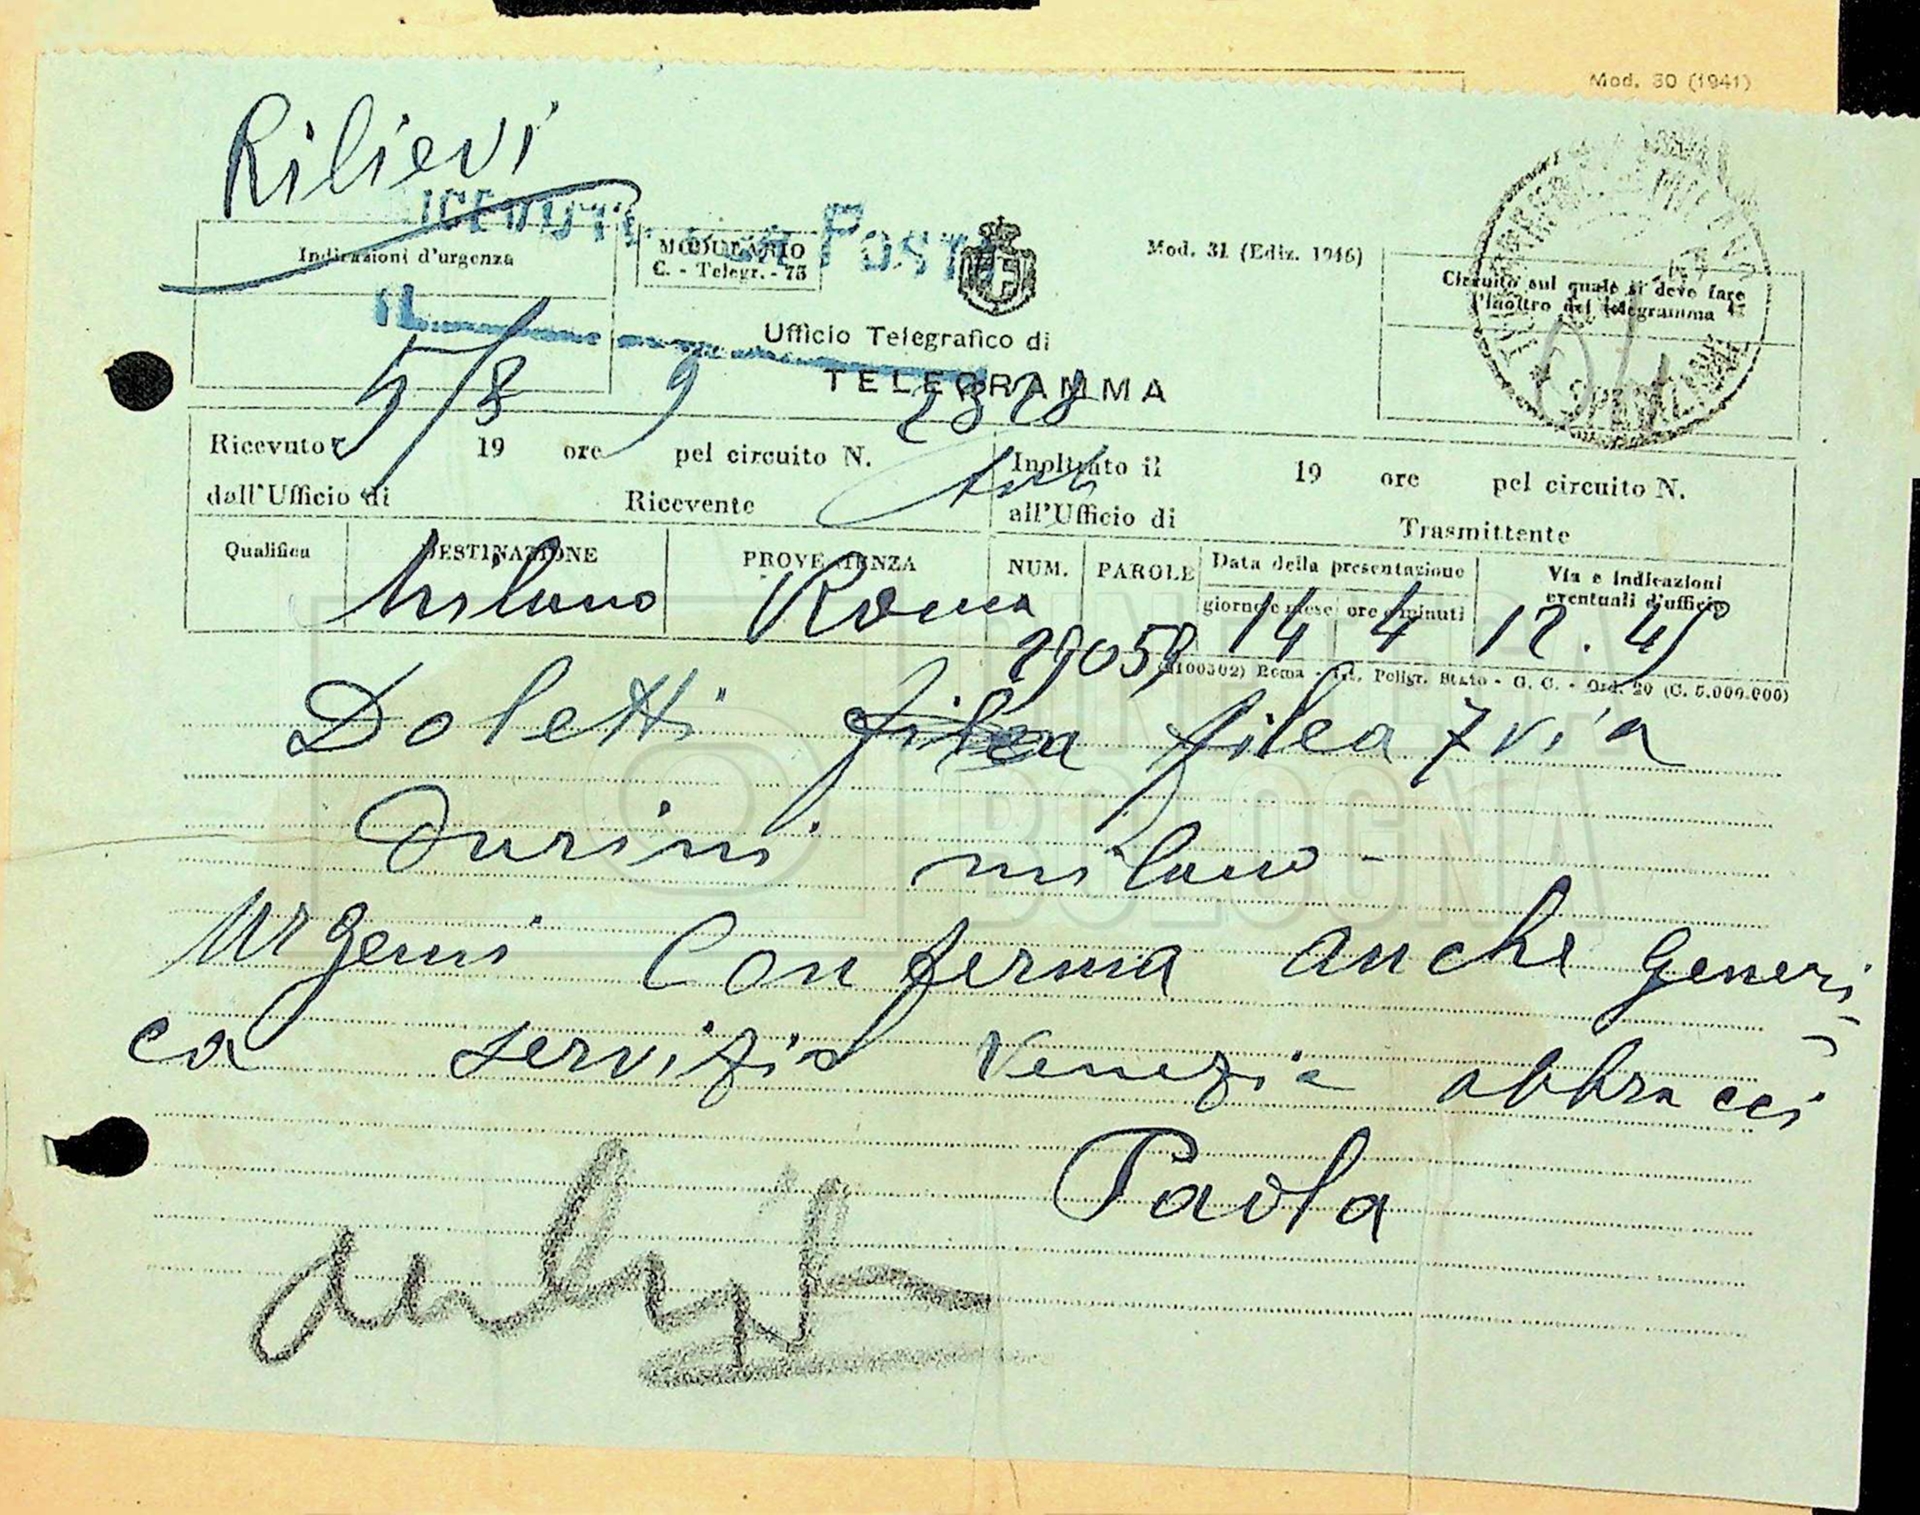 Mod. 30 (1941)
Rilievi
RICEVUTO PER POSTA
Indicazioni d'urgenza
MODULARIO
C. - Telegr. - 75
Mod. 31 (Ediz. 1946)
Circuito sul quale si deve fare
l'inoltro del telegramma
Il
Ufficio Telegrafico di
TELEGRAMMA
5/8 9
Ricevuto 19 ore pel circuito N.
dall'Ufficio di Ricevente
Inoltrato il 19 ore pel circuito N.
all'Ufficio di Trasmittente
Qualifica DESTINAZIONE PROVENIENZA NUM. PAROLE Data della presentazione Via e indicazioni
giorno e mese ore e minuti eventuali d'ufficio
Milano Roma 29059 14 4 12.45
(4100302) Roma - Ist. Poligr. Stato - G. C. - Ord. 20 (C. 5.000.000)
Doletti filea filea 7 via
Durini milano -
Urgemi Conferma anche generi
ca servizio Venezia abbracci
Paola
CINETECA
BOLOGNA